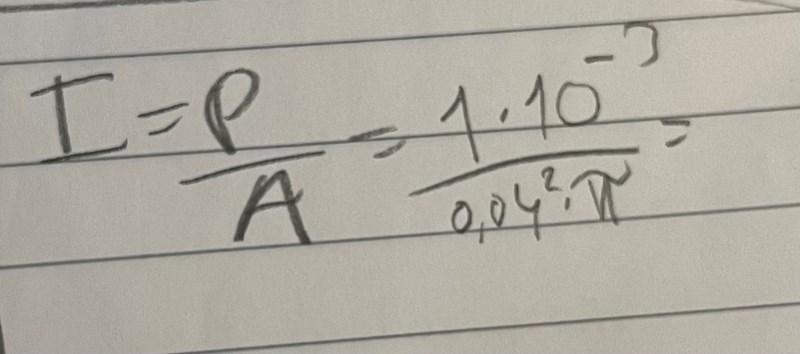 I = P/A = 1·10⁻³/0,04²·π =